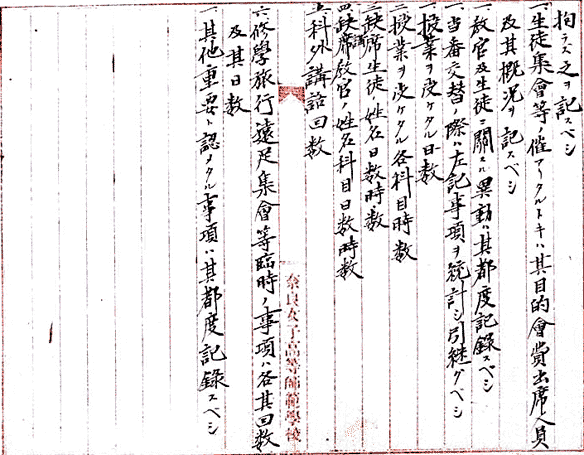 拘ラズ之ヲ記スベシ
一、生徒集會等ノ催アリタルトキハ其目的會費出席人員
及其概況ヲ記スベシ
一、教官及生徒ニ關スル異動ハ其都度記録スベシ
一、当番交替ノ際ハ左記事項ヲ統計シ引継グベシ
一、授業ヲ受ケタル日数
二、授業ヲ受ケタル各科目時数
三、缺席生徒ノ姓名日数時数
四、缺席教官ノ姓名科目日数時数
五、科外講話回数
六、修學旅行遠足集會等臨時ノ事項ハ各其回数
及其日数
一、其他重要ト認メタル事項ハ其都度記録スベシ
奈良女子高等師範學校